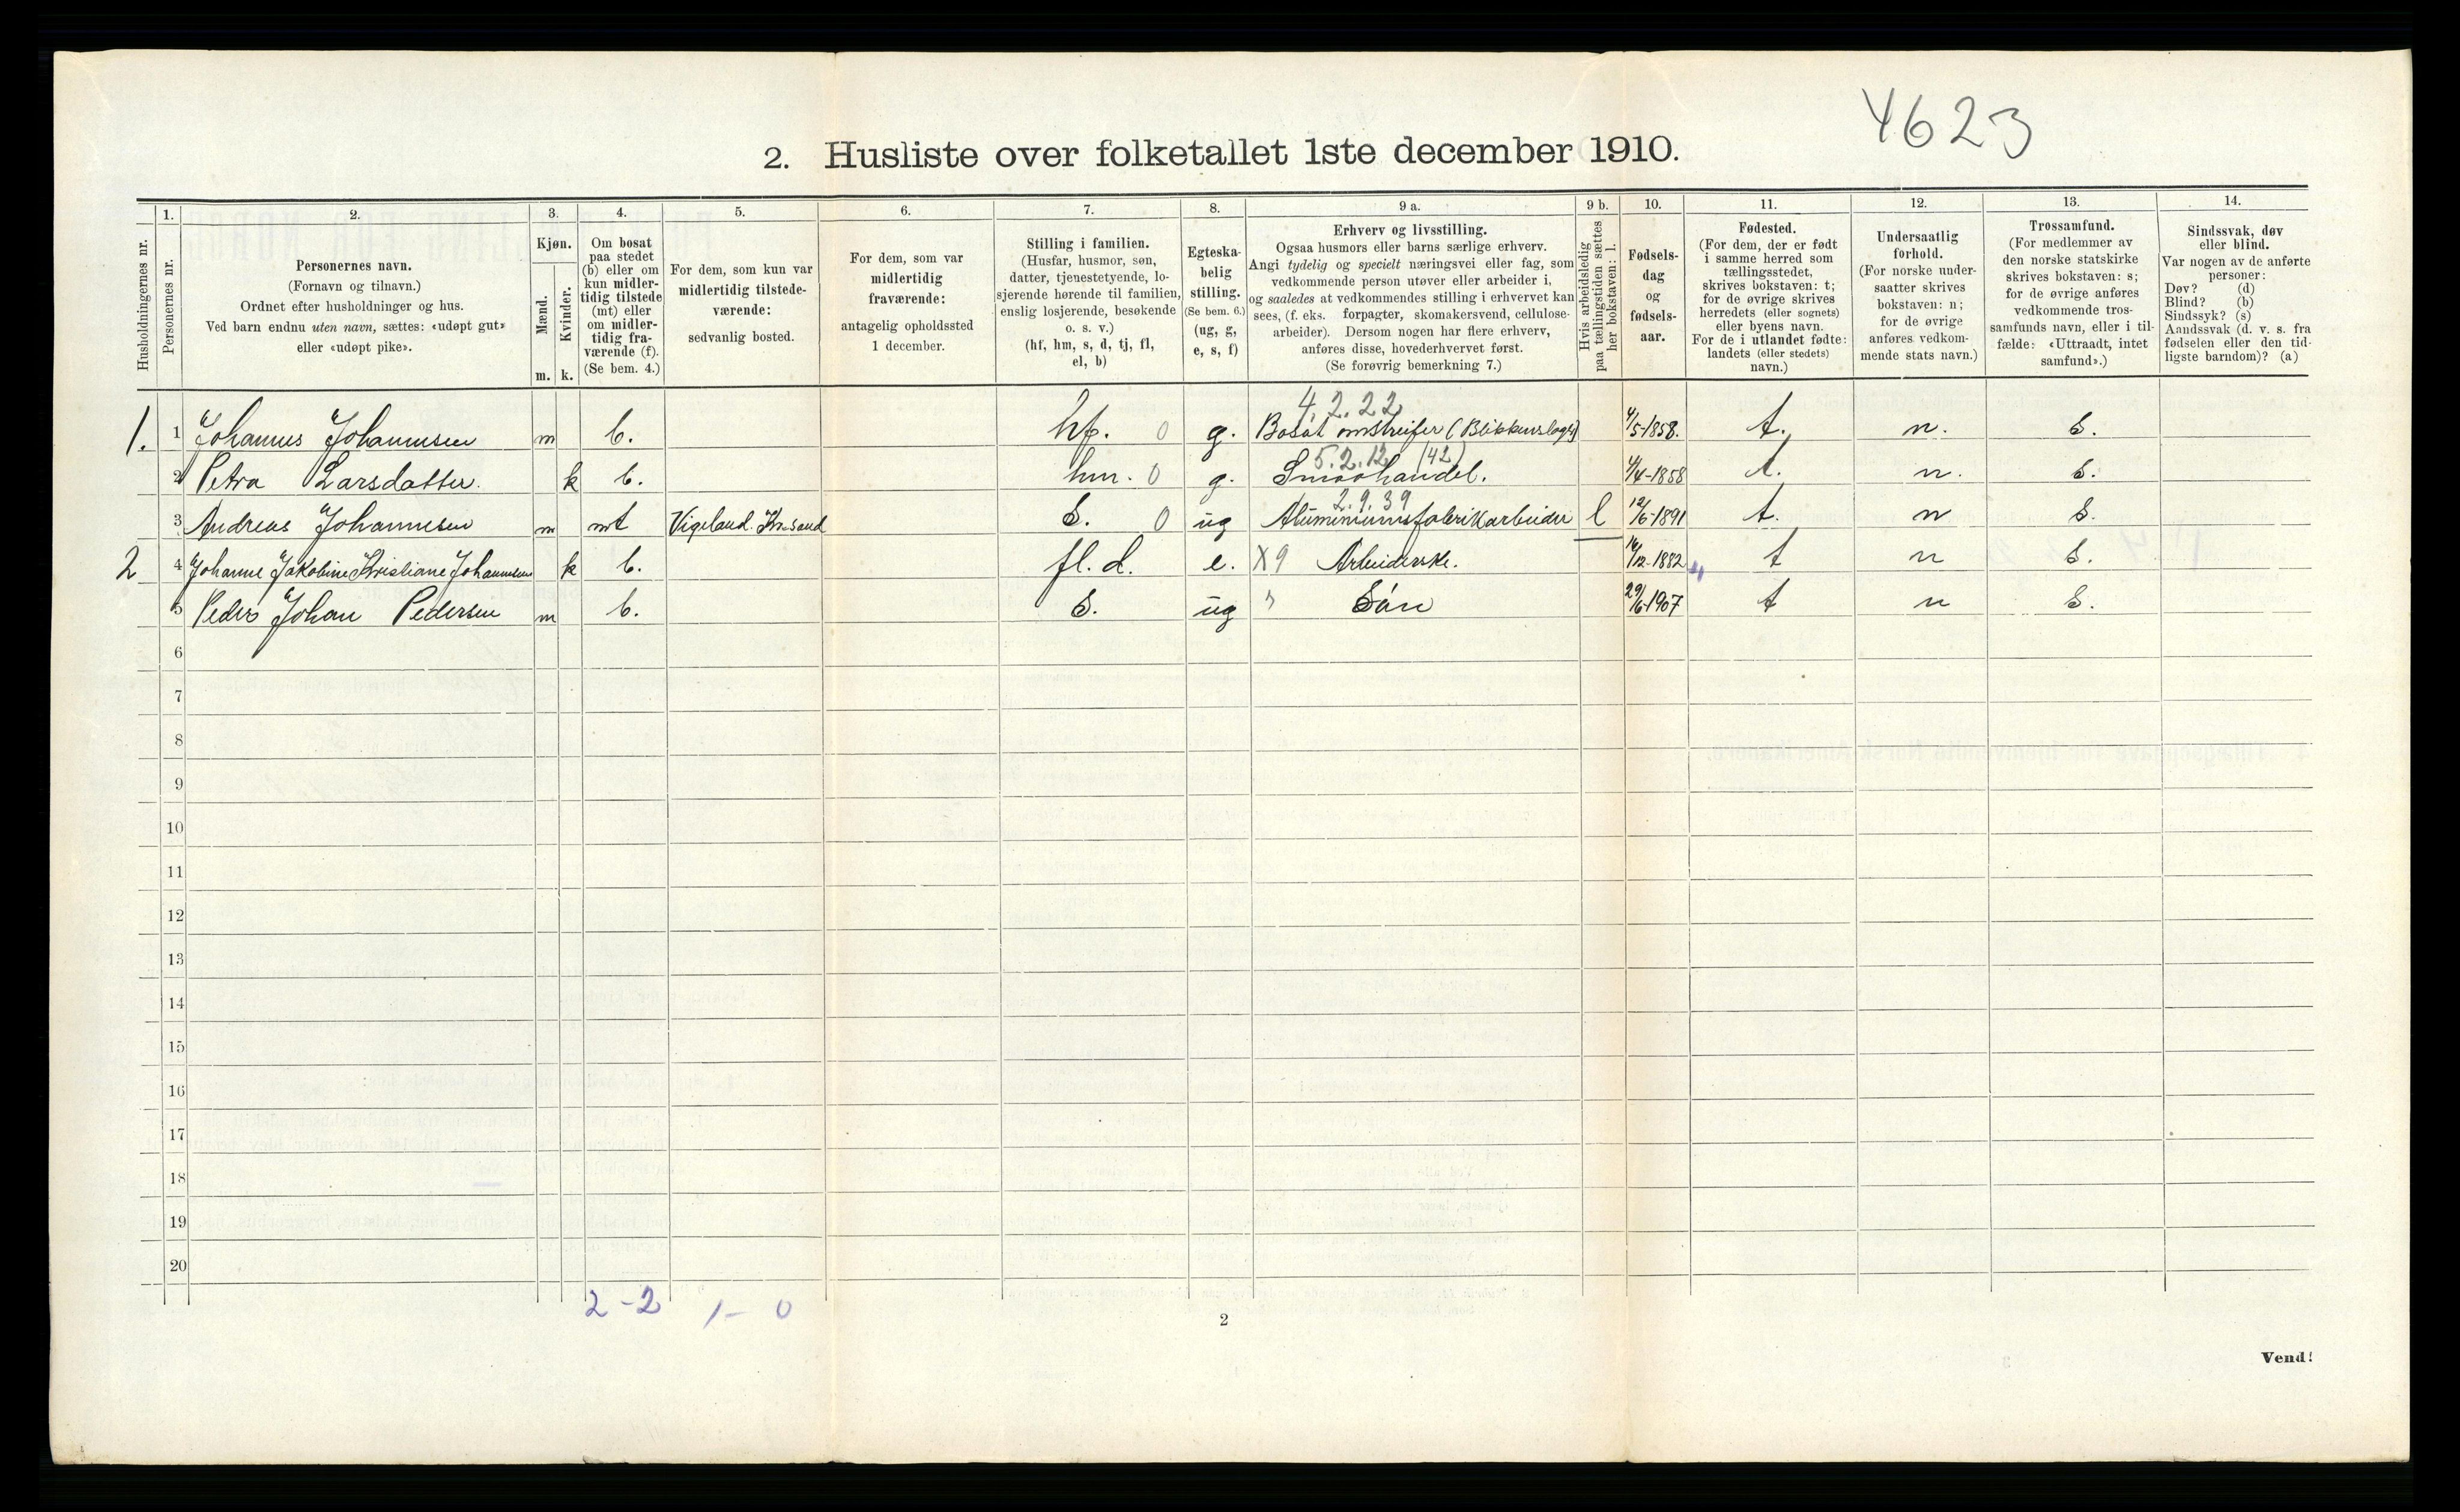 4623
2. Husliste over folketallet 1ste december 1910.
Husholdningernes nr.
1. Personernes nr.
2. Personernes navn.
(Fornavn og tilnavn.)
Ordnet efter husholdninger og hus.
Ved barn endnu uten navn, sættes: «udøpt gut»
eller «udøpt pike».
3. Kjøn.
Mænd. Kvinder.
m. k.
4. Om bosat
paa stedet
(b) eller om
kun midler-
tidig tilstede
(mt) eller
om midler-
tidig fra-
værende (f).
(Se bem. 4.)
5. For dem, som kun var
midlertidig tilstede-
værende:
sedvanlig bosted.
6. For dem, som var
midlertidig
fraværende:
antagelig opholdssted
1 december.
7. Stilling i familien.
(Husfar, husmor, søn,
datter, tjenestetyende, lo-
sjerende hørende til familien,
enslig losjerende, besøkende
o. s. v.)
(hf, hm, s, d, tj, fl,
el, b)
8. Egteska-
belig
stilling.
(Se bem. 6.)
(ug, g,
e, s, f)
9 a. Erhverv og livsstilling.
Ogsaa husmors eller barns særlige erhverv.
Angi tydelig og specielt næringsvei eller fag, som
vedkommende person utøver eller arbeider i,
og saaledes at vedkommendes stilling i erhvervet kan
sees, (f. eks. forpagter, skomakersvend, cellulose-
arbeider). Dersom nogen har flere erhverv,
anføres disse, hovederhvervet først.
(Se forøvrig bemerkning 7.)
9 b. Hvis arbeidsledig
paa tællingstiden sættes
her bokstaven: l.
10. Fødsels-
dag
og
fødsels-
aar.
11. Fødested.
(For dem, der er født
i samme herred som
tællingsstedet,
skrives bokstaven: t;
for de øvrige skrives
herredets (eller sognets)
eller byens navn.
For de i utlandet fødte:
landets (eller stedets)
navn.)
12. Undersaatlig
forhold.
(For norske under-
saatter skrives
bokstaven: n;
for de øvrige
anføres vedkom-
mende stats navn.)
13. Trossamfund.
(For medlemmer av
den norske statskirke
skrives bokstaven: s;
for de øvrige anføres
vedkommende tros-
samfunds navn, eller i til-
fælde: «Uttraadt, intet
samfund».)
14. Sindssvak, døv
eller blind.
Var nogen av de anførte
personer:
Døv? (d)
Blind? (b)
Sindssyk? (s)
Aandssvak (d. v. s. fra
fødselen eller den tid-
ligste barndom)? (a)
4.2.22
1. 1 Johannus Johannesen m b. hf. 0 g. Bosat omstreifer (Blikkenslager) 4/5-1858. t. n. s.
5.2.12 (42)
2 Petra Larsdatter. k b. hm. 0 g. Smaahandel. 4/4-1858 t. n. s.
2.9.39
3 Andreas Johannesen m mt Vigeland. Kr.sand s. 0 ug Aluminiumsfabrikarbeider l 12/6-1891 t. n s.
2 4 Johanne Jakobine Kristiane Johannesen k b. fl. d. e. X9 Arbeiderske. 16/12-1882 t n s.
5 Peder Johan Pedersen m b. s. ug " Sön 29/6-1907 t n s.
6
7
8
9
10
11
12
13
14
15
16
17
18
19
20
2-2 1-0
2
Vend!